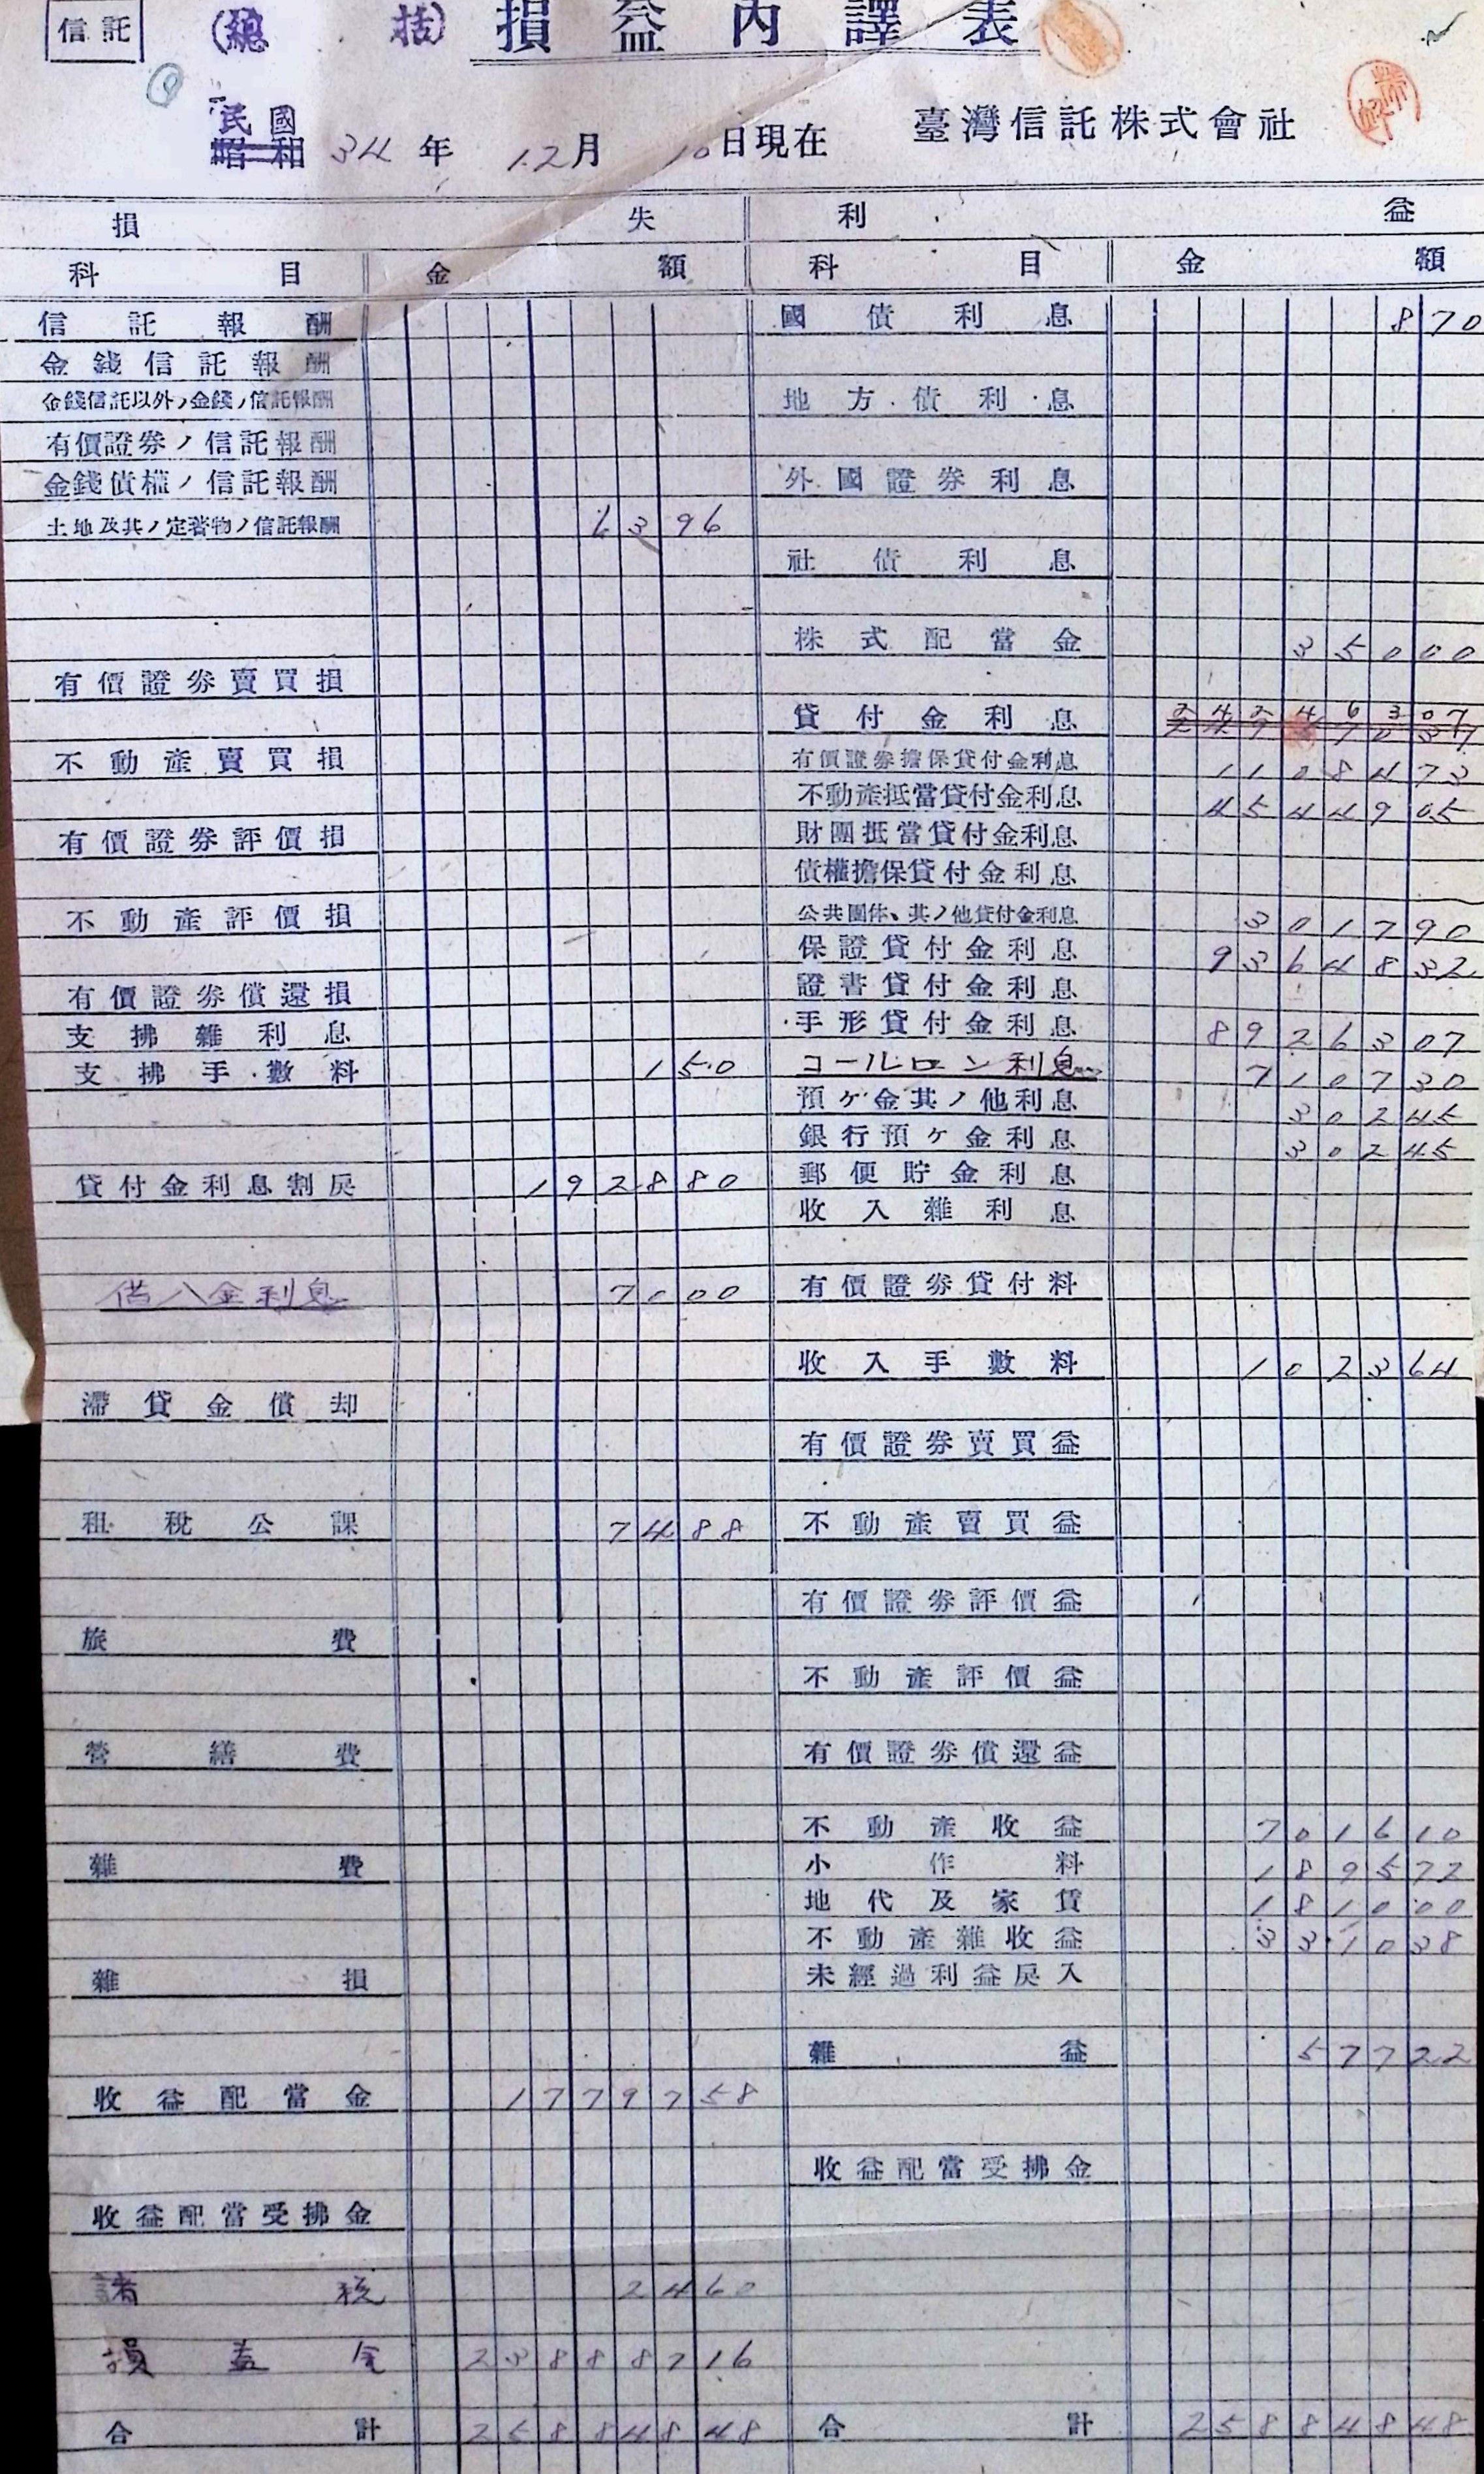 信託
(總括) 損益內譯表
民國
昭和 34年 12月 10日現在 臺灣信託株式會社
損失 利益
科目 金額 科目 金額
信託報酬 國債利息 870
金錢信託報酬
金錢信託以外ノ金錢ノ信託報酬 地方債利息
有價證券ノ信託報酬
金錢債權ノ信託報酬 外國證券利息
土地及其ノ定著物ノ信託報酬 6396
社債利息
株式配當金 35000
有價證券賣買損
貸付金利息 24246307
不動產賣買損 有價證券擔保貸付金利息 1108473
不動產抵當貸付金利息 4544905
有價證券評價損 財團抵當貸付金利息
債權擔保貸付金利息
不動產評價損 公共團体、其ノ他貸付金利息 301790
保證貸付金利息 9364832
有價證券償還損 證書貸付金利息
支拂雜利息 手形貸付金利息 8926307
支拂手數料 150 コールローン利息 710730
預ケ金其ノ他利息 30245
銀行預ケ金利息 30245
貸付金利息割戾 192880 郵便貯金利息
收入雜利息
借入金利息 7000 有價證券貸付料
收入手數料 102364
滯貸金償却
有價證券賣買益
租稅公課 7488 不動產賣買益
有價證券評價益
旅費
不動產評價益
營繕費 有價證券償還益
不動產收益 701610
雜費 小作料 189572
地代及家賃 181000
不動產雜收益 331038
雜損 未經過利益戾入
雜益 57722
收益配當金 1779758
收益配當受拂金
收益配當受拂金
諸稅 2460
損益金 23888716
合計 25884848 合計 25884848